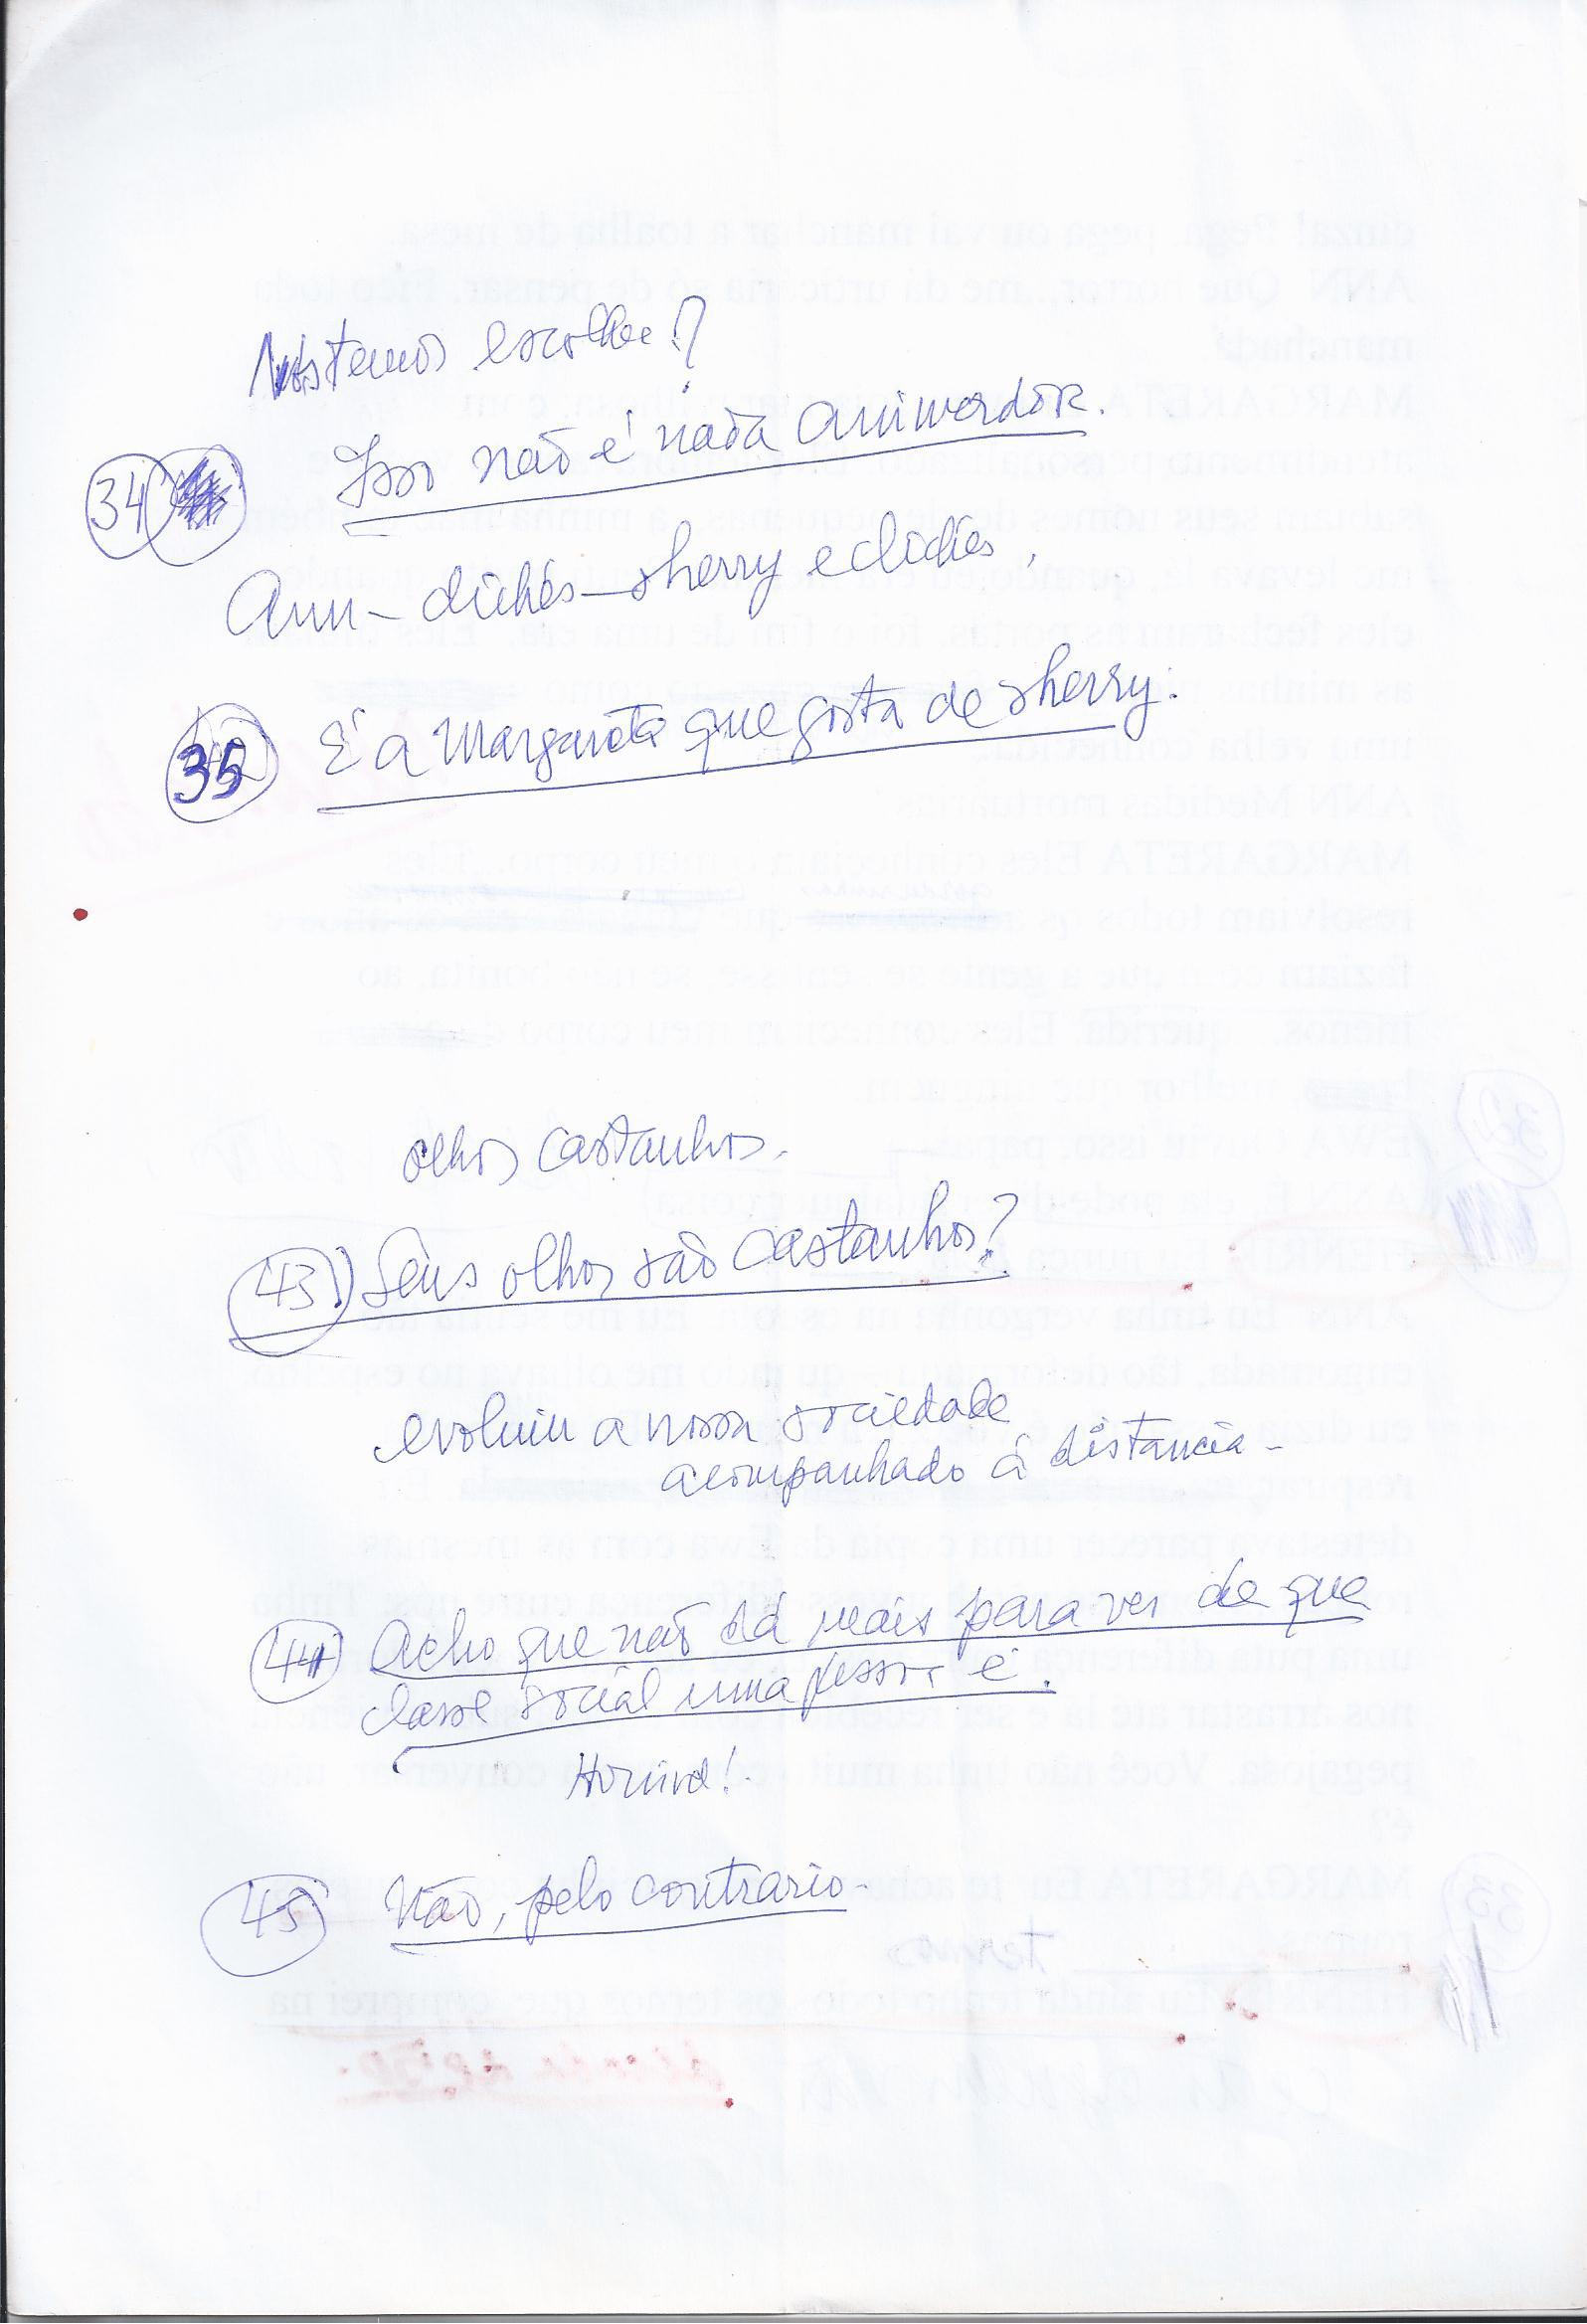 Nós temos escolha?
34 Isso não é nada animador.
Ann – clichês – sherry e clichês.
35 É a Margareta que gosta de sherry.
olhos castanhos.
43 Seus olhos são castanhos?
evoluiu a nossa sociedade
acompanhado à distancia –
44 Acho que não dá mais para ver de que
classe social uma pessoa é.
45 Não, pelo contrario.